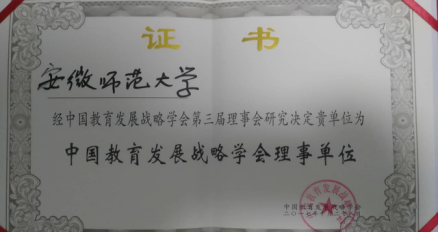 证 书
安徽师范大学
经中国教育发展战略学会第三届理事会研究决定贵单位为
中国教育发展战略学会理事单位
中国教育发展战略学会